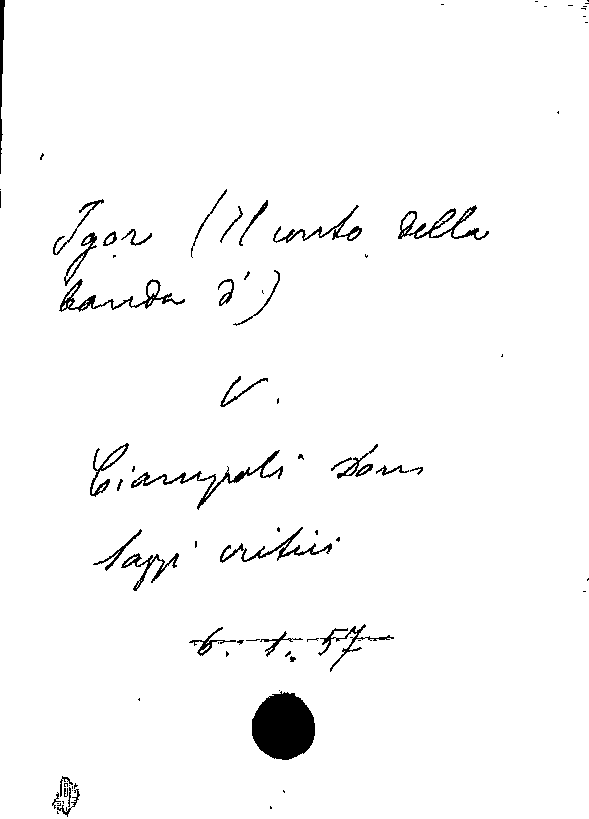 Igor (Il canto della
banda d')
V.
Ciampoli Dom
Saggi critici
6. 1. 57